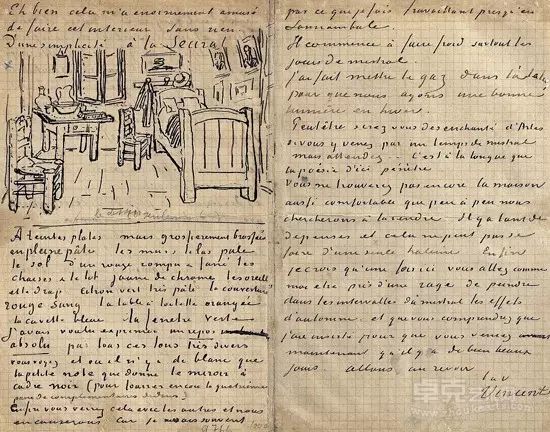 Eh bien cela m'a enormement amusé
de faire cet interieur sans rien
D'une simplicité à la Seurat
A teintes plates mais grossierement brossées
en pleine pâte les murs lilas pale
le sol d'un rouge rompu & fané les
chaises & le lit jaune de chrome les oreillers
et le drap citron vert très pâle la couverture
rouge sang la table à toilette orangée
la cuvette bleue la fenetre verte
J'avais voulu exprimer un repos
absolu par tous ces tons très divers
vous voyez et où il n'y a de blanc que
la petite note que donne le miroir à
cadre noir (pour fourrer encore la quatrième
paire de complémentaires dedans)
Enfin vous verrez cela avec les autres et nous
en causerons car je ne sais souvent
par ce que je fais travaillant presqu'en
somnambule
Il commence à faire froid surtout les
jours de mistral.
J'ai fait mettre le gaz dans la
pour que nous ayons une bonne
lumière en hiver.
Peut être serez vous desenchanté d'Arles
si vous y venez par un temps de mistral
mais attendez .. C'est à la longue que
la poésie d'ici pénètre
vous ne trouverez pas encore la maison
aussi comfortable que peu à peu nous
chercherons à la rendre Il y a tant de
depenses et cela ne peut pas se
faire d'une seule haleine Enfin
je crois qu'une fois ici vous allez comme
moi etre pris d'une rage de peindre
dans les intervalles du mistral les effets
d'automne. et que vous comprendrez que
j'ai insisté pour que vous veniez
maintenant qu'il y a de bien beaux
jours allons au revoir
t. à v.
Vincent
卓克艺术